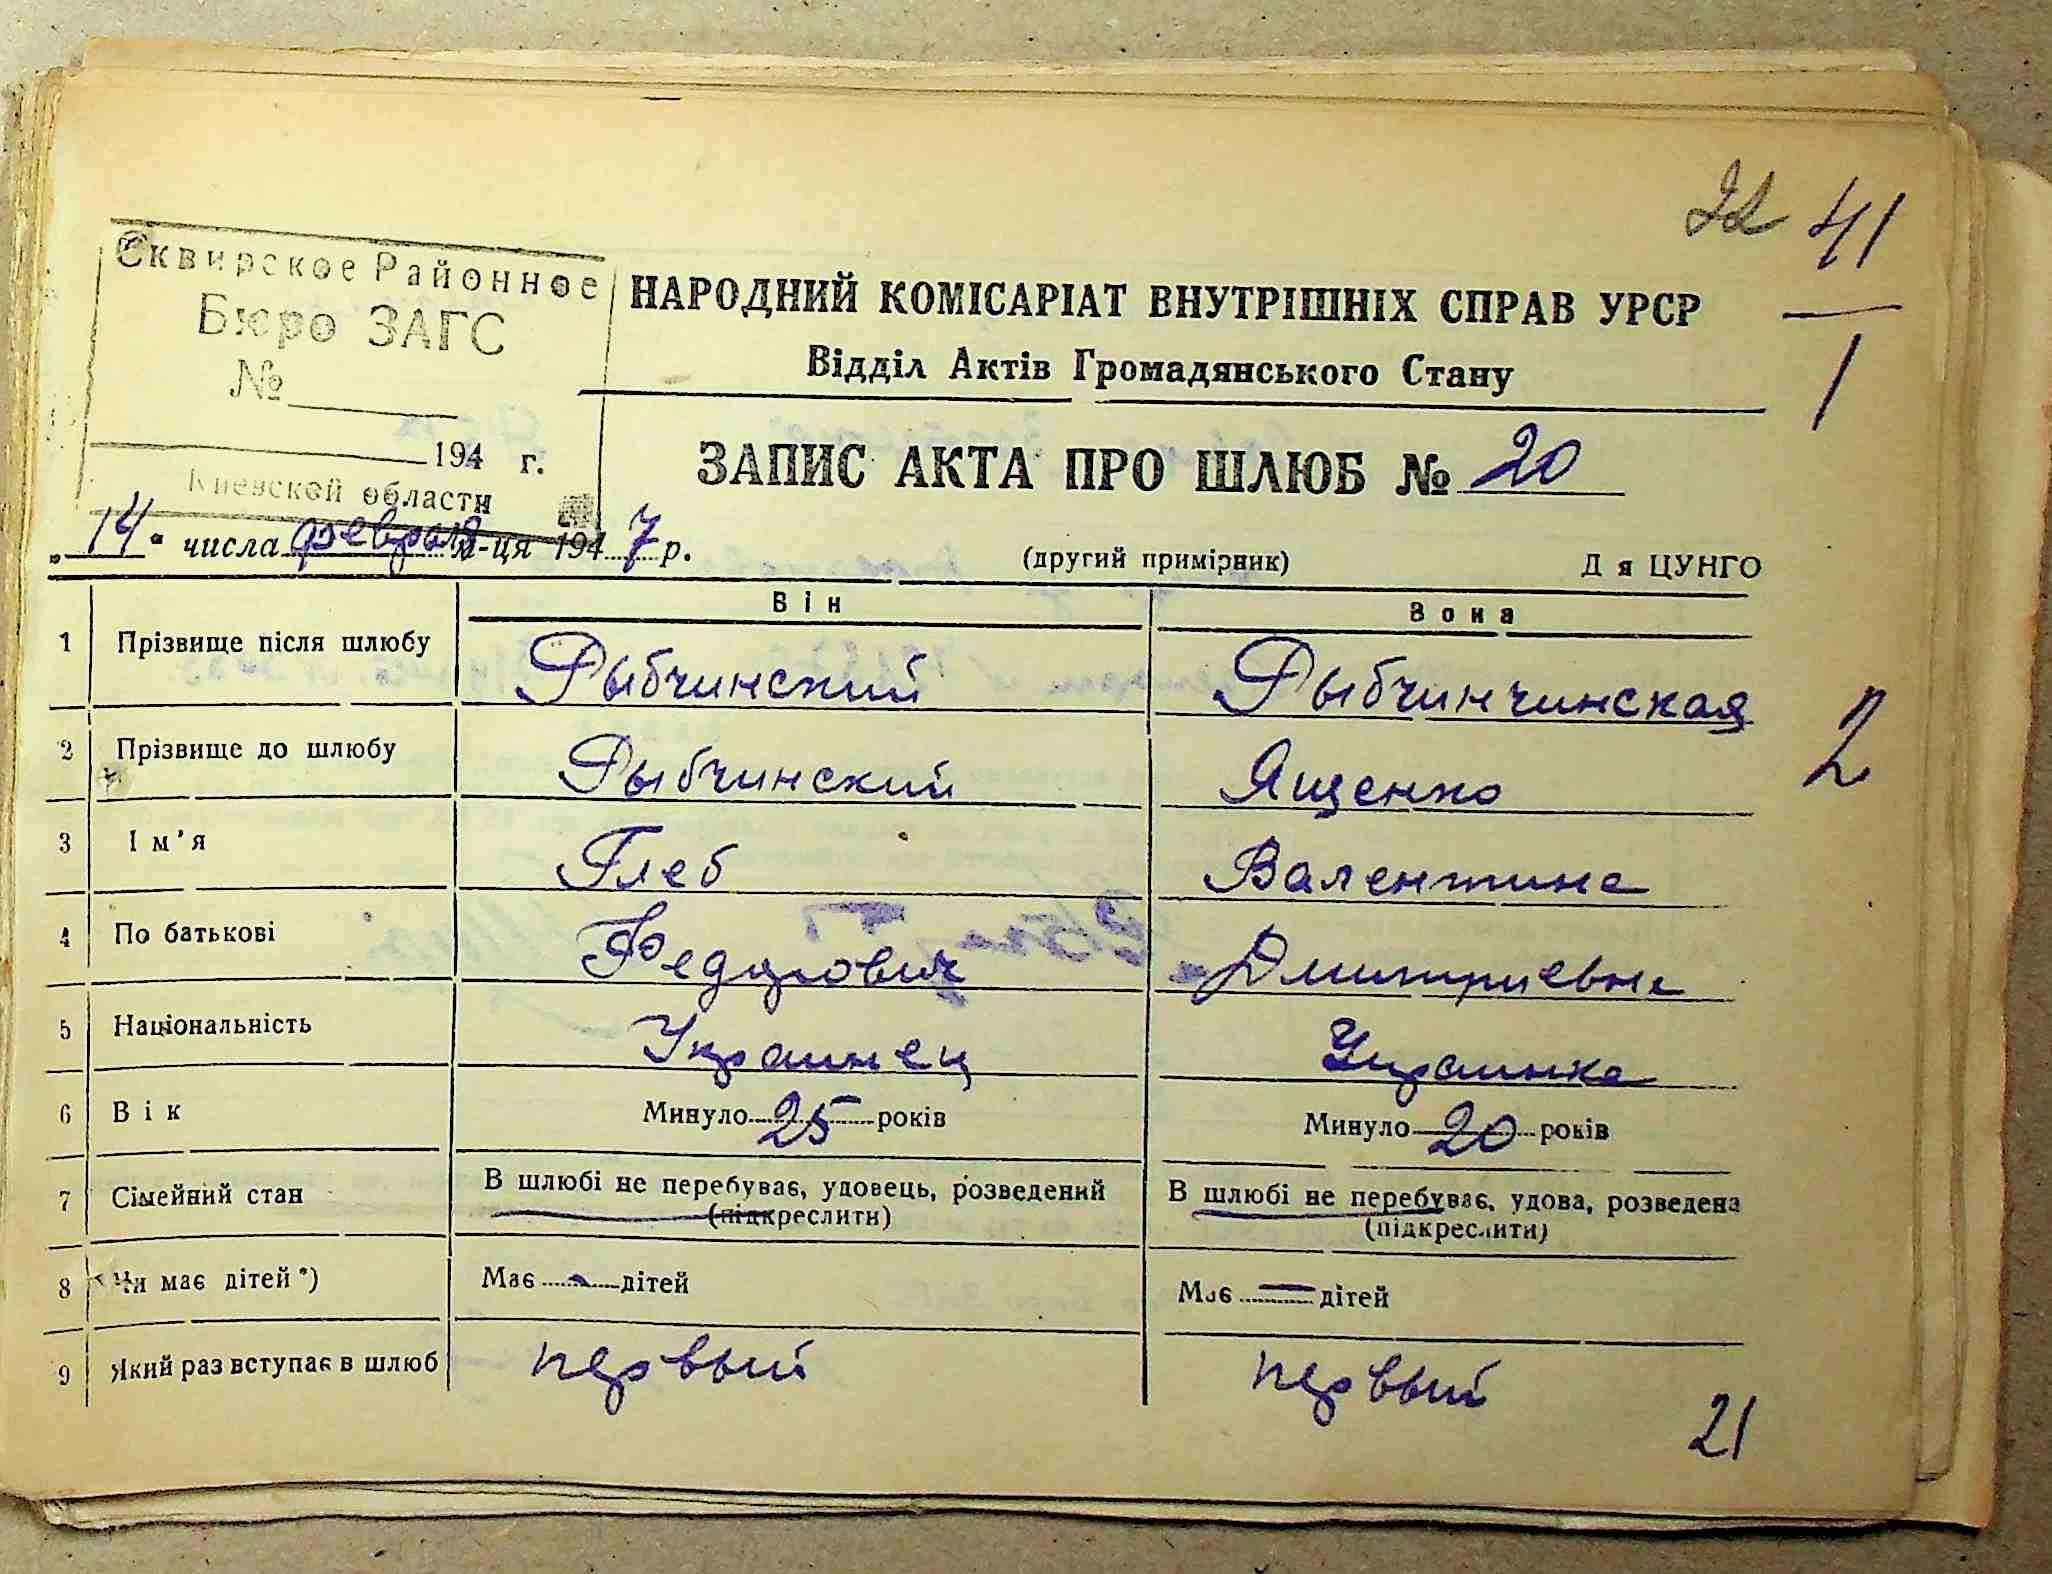 22 41
1
Сквирское Районное
Бюро ЗАГС
№
194 г.
Киевской области
НАРОДНИЙ КОМІСАРІАТ ВНУТРІШНІХ СПРАВ УРСР
Відділ Актів Громадянського Стану
ЗАПИС АКТА ПРО ШЛЮБ № 20
„14" числа февраля м-ця 1947 р. (другий примірник) Д я ЦУНГО
Він Вона
1 Прізвище після шлюбу Рыбчинский Рыбчинчинская
2
2 Прізвище до шлюбу Рыбчинский Ященко
3 Ім'я Глеб Валентина
4 По батькові Федорович Дмитриевна
5 Національність Украинец Украинка
6 Вік Минуло 25 років Минуло 20 років
7 Сімейний стан В шлюбі не перебуває, удовець, розведений В шлюбі не перебуває, удова, розведена
(підкреслити) (підкреслити)
8 Чи має дітей *) Має - дітей Має - дітей
9 Який раз вступає в шлюб первый первый
21